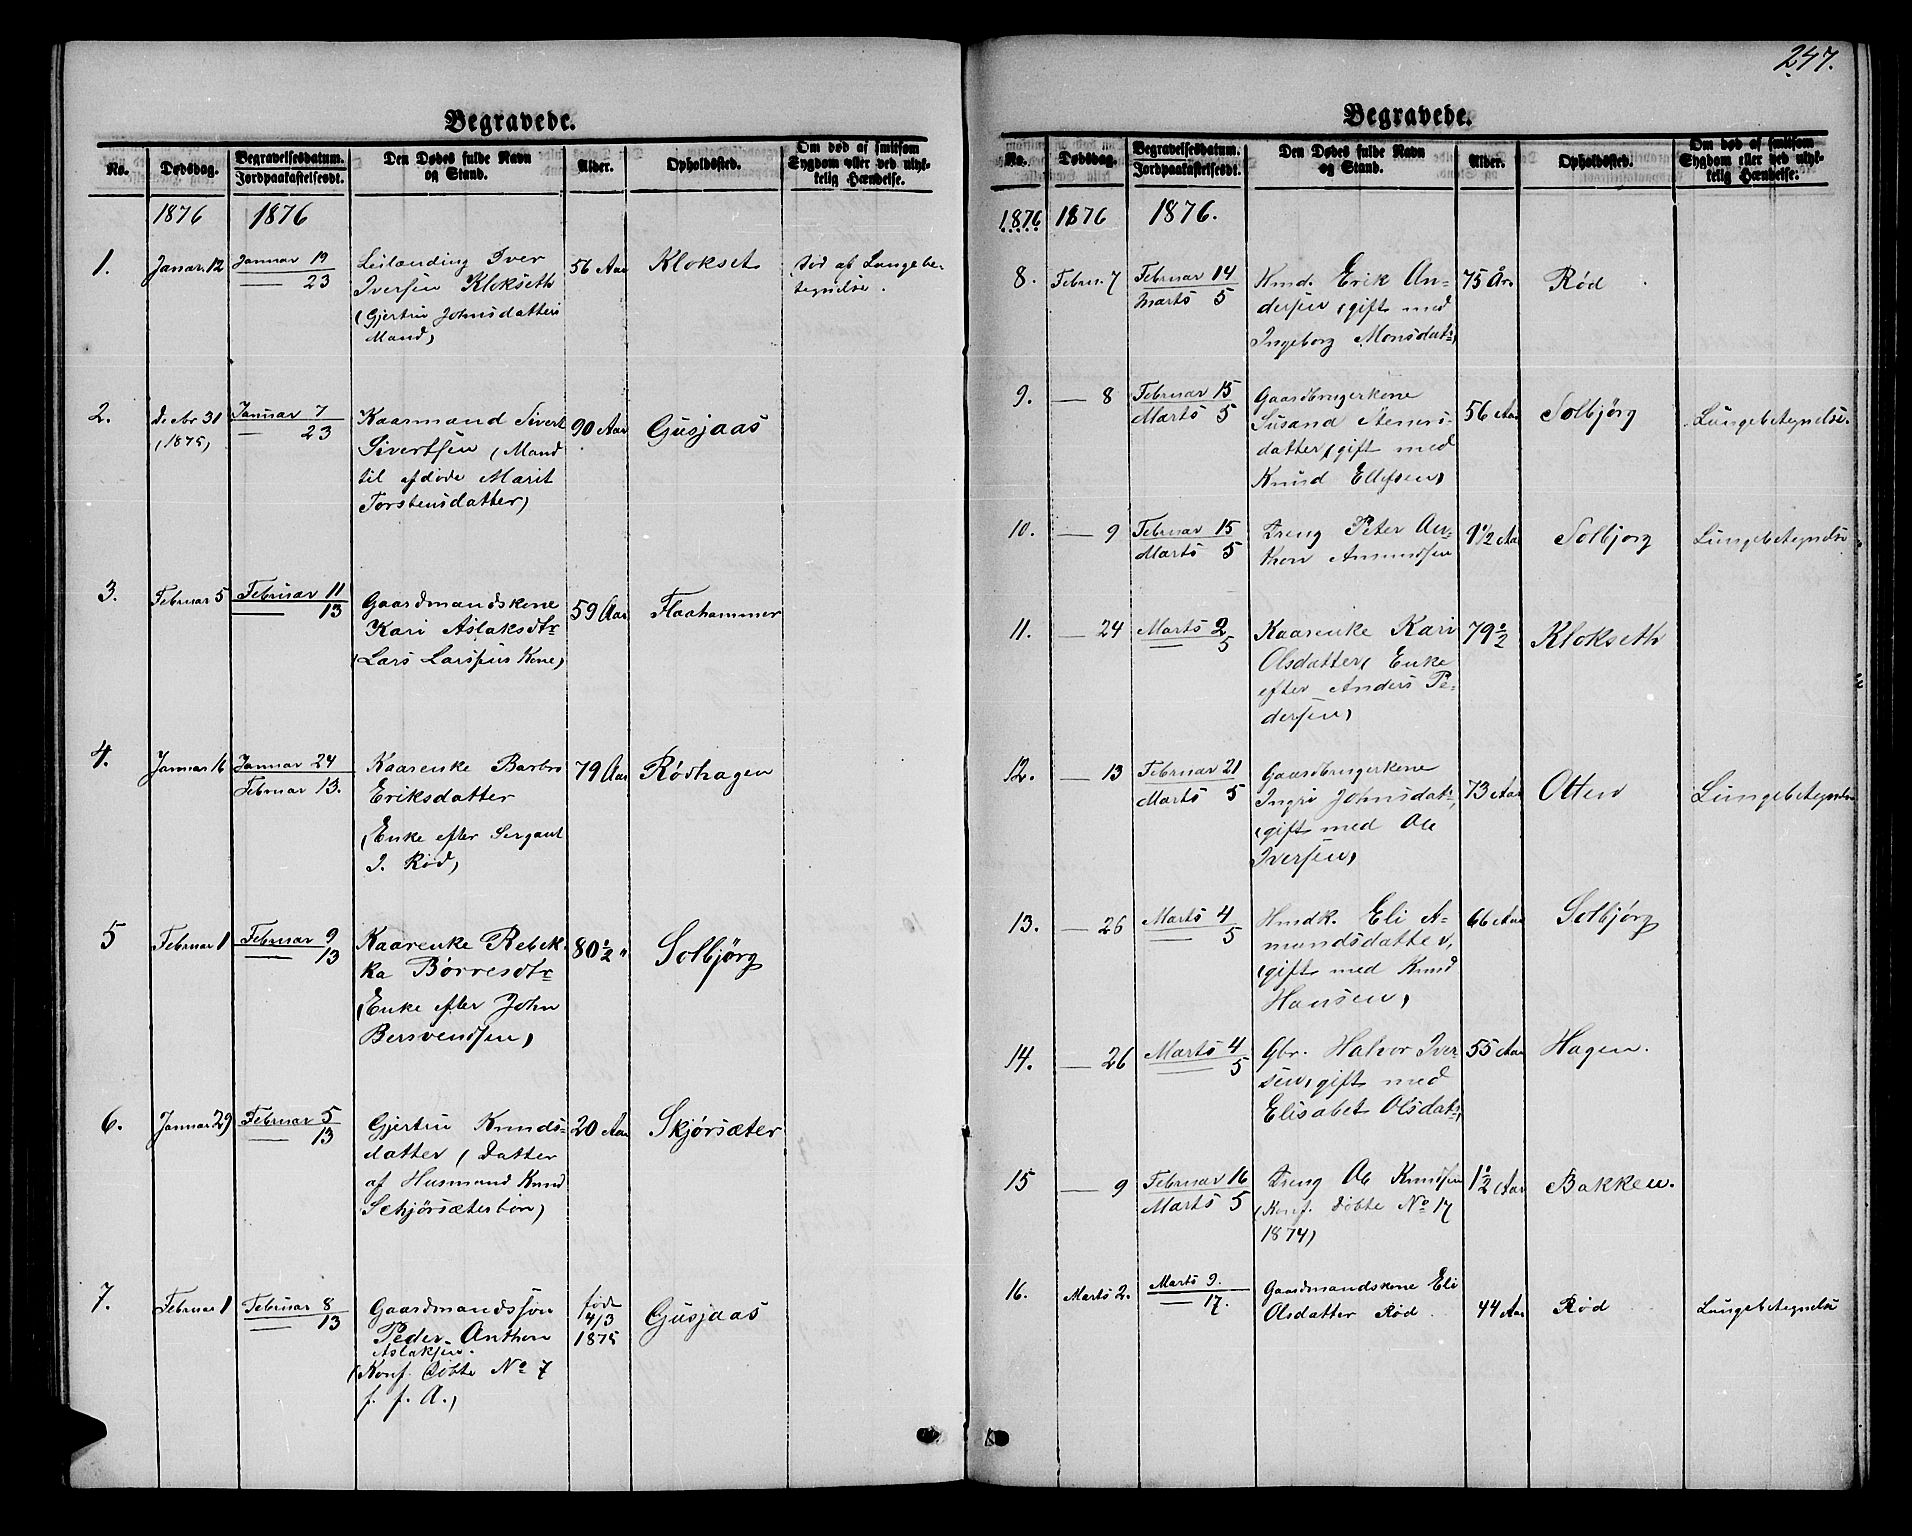 247.
Begravede.
No.
Dødsdag.
Begravelsesdatum.
Jordpaakastelsesdt.
Den Dødes fulde Navn
og Stand.
Alder.
Opholdssted.
Om død af smitsom
Sygdom eller ved ulyk-
kelig Hændelse.
1876 1876
1. Januar 12 Januar 19
23
Leilænding Iver
Iversen Klokseth
(Gjertru Johnsdatters
Mand)
56 Aar Klokset
død af Lungebe-
tendelse.
2. Decbr 31
(1875)
Januar 7
23
Kaarmand Sivert
Sivertsen (Mand
til afdøde Marit
Torstensdatter)
90 Aar Gusjaas
3. Februar 5 Februar 11
13
Gaardmandskone
Kari Aslaksdtr
(Lars Larssens Kone)
59 Aar Flaahammer
4. Januar 16 Januar 24
Februar 13.
Kaarenke Barbro
Eriksdatter
(Enke efter Sergant
I. Rød)
79 Aar Rødhagen
5 Februar 1 Februar 9
13
Kaarenke Rebek-
ka Børresdtr
(Enke efter John
Bersvendsen)
80 1/2 " Solbjørg
6. Januar 29 Februar 5
13
Gjertru Knuds-
datter (Datter
af Husmand Knud
Schjørsæterbøen)
20 Aar Skjørsæter
7. Februar 1 Februar 8
13
Gaardmandssøn
Peder Anthon
Aslaksen.
(Konf. Døbte No 7
f. f. A.)
født
4/3
1875
Gusjaas
Begravede.
No.
Dødsdag.
Begravelsesdatum.
Jordpaakastelsesdt.
Den Dødes fulde Navn
og Stand.
Alder.
Opholdssted.
Om død af smitsom
Sygdom eller ved ulyk-
kelig Hændelse.
1876 1876 1876.
8. Februar 7 Februar 14
Marts 5
Hmd. Erik An-
dersen (gift med
Ingeborg Monsdatr)
75 År. Rød
9. — 8 Februar 15
Marts 5
Gaardbrugerkone
Susand Steners-
datter (gift med
Knud Ellefsen)
56 Aar Solbjørg Lungebetændelse.
10. — 9 Februar 15
Marts 5
Dreng Peter An-
thon Amundsen
9 1/2 Aar Solbjørg Lungebetændelse
11. — 24 Marts 2
5
Kaarenke Kari
Olsdatter (Enke
efter Anders Pe-
dersen)
79 1/2 Klokseth
12. — 13 Februar 21
Marts 5
Gaardbrugerkone
Ingri Johnsdatr,
(gift med Ole
Iversen)
73 Aar Otten Lungebetændelse
13. — 26 Marts 4
5
Hmdk. Eli A-
mundsdatter,
(gift med Knud
Hansen)
66 Aar Solbjørg
14. — 26 Marts 4
5
Gbr. Halvor Iver
sen (gift med
Elisabet Olsdatr)
55 Aar Hagen.
15 — 9 Februar 16
Marts 5
Dreng Ole Knudsen
(Konf. Døbte No 17
1874)
1 1/2 Aar Bakken.
16. Marts 2. Marts 9.
17.
Gaardmandskone Eli
Olsdatter Rød.
44 Aar Rød Lungebetændelse